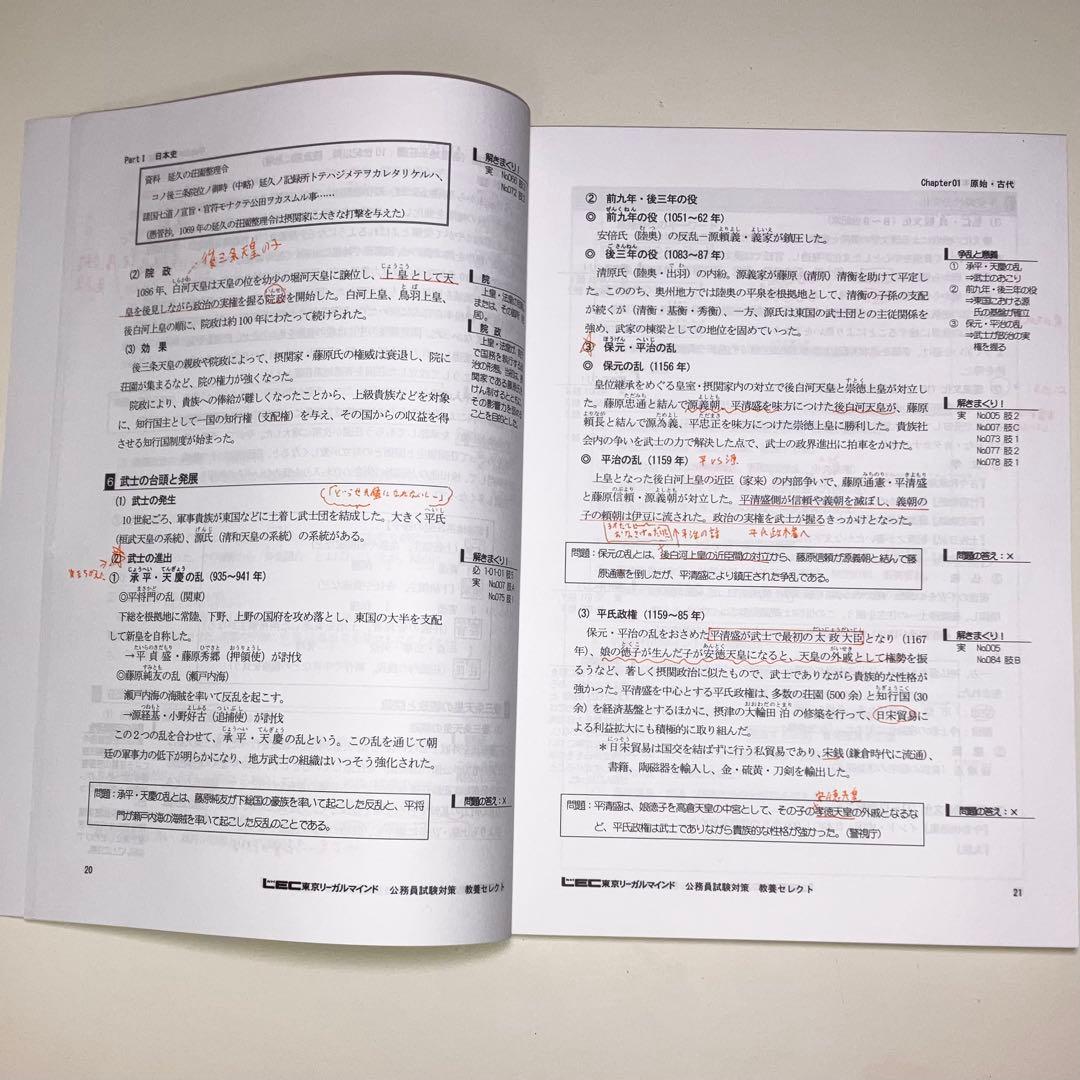 Part I 日本史
資料 延久の荘園整理令
コノ後三条院位ノ御時（中略）延久ノ記録所トテハジメテヲカレタリケルハ、
諸国七道ノ宣旨・官符モナクテ公田ヲカスムル事……
（愚管抄，1069年の延久の荘園整理令は摂関家に大きな打撃を与えた）
後三条天皇の子
(2) 院 政
1086年，白河天皇は天皇の位を幼少の堀河天皇に譲位し，上皇として天
皇を後見しながら政治の実権を握る院政を開始した。白河上皇，鳥羽上皇，
後白河上皇の順に，院政は約100年にわたって続けられた。
(3) 効 果
後三条天皇の親政や院政によって，摂関家・藤原氏の権威は衰退し，院に
荘園が集まるなど，院の権力が強くなった。
院政により，貴族への俸給が難しくなったことから，上級貴族などを対象
に，知行国主として一国の知行権（支配権）を与え，その国からの収益を得
させる知行国制度が始まった。
解きまくり！
実 No066 肢
No072 肢
院
上皇・法皇の
または，その
居）。
院 政
上皇・法皇が，
で国務を執行する
治の形態。当初は
関家である藤原氏を
けん制するととも
その影響力を弱め
ことを目的とした
6 武士の台頭と発展
(1) 武士の発生
10世紀ごろ，軍事貴族が東国などに土着し武士団を結成した。大きく平氏
（桓武天皇の系統），源氏（清和天皇の系統）の系統がある。
(2) 武士の進出
① 承平・天慶の乱（935～941年）
◎平将門の乱（関東）
下総を根拠地に常陸，下野，上野の国府を攻め落とし，東国の大半を支配
して新皇を自称した。
→平貞盛・藤原秀郷（押領使）が討伐
◎藤原純友の乱（瀬戸内海）
瀬戸内海の海賊を率いて反乱を起こす。
→源経基・小野好古（追捕使）が討伐
この2つの乱を合わせて，承平・天慶の乱という。この乱を通じて朝
廷の軍事力の低下が明らかになり，地方武士の組織はいっそう強化された。
解きまくり！
必 1-01-01 肢5
実 No007 肢A
No075 肢1
問題：承平・天慶の乱とは，藤原純友が下総国の豪族を率いて起こした反乱と，平将
門が瀬戸内海の海賊を率いて起こした反乱のことである。
問題の答え：×
20
LEC東京リーガルマインド 公務員試験対策 教養セレクト
Chapter01 原始・古代
② 前九年・後三年の役
◎ 前九年の役（1051～62年）
安倍氏（陸奥）の反乱－源頼義・義家が鎮圧した。
◎ 後三年の役（1083～87年）
清原氏（陸奥・出羽）の内紛。源義家が藤原（清原）清衡を助けて平定し
た。こののち，奥州地方では陸奥の平泉を根拠地として，清衡の子孫の支配
が続くが（清衡・基衡・秀衡），一方，源氏は東国の武士団との主従関係を
強め，武家の棟梁としての地位を固めていった。
③ 保元・平治の乱
◎ 保元の乱（1156年）
皇位継承をめぐる皇室・摂関家内の対立で後白河天皇と崇徳上皇が対立し
た。藤原忠通と結んで源義朝，平清盛を味方につけた後白河天皇が，藤原
頼長と結んで源為義，平忠正を味方につけた崇徳上皇に勝利した。貴族社
会内の争いを武士の力で解決した点で，武士の政界進出に拍車をかけた。
◎ 平治の乱（1159年） 平vs源
上皇となった後白河上皇の近臣（家来）の内部争いで，藤原通憲・平清盛
と藤原信頼・源義朝が対立した。平清盛側が信頼や義朝を滅ぼし，義朝の
子の頼朝は伊豆に流された。政治の実権を武士が握るきっかけとなった。
平氏政権へ
争乱と意義
① 承平・天慶の乱
⇒武士のおこり
② 前九年・後三年の役
⇒東国における源
氏の基盤が確立
③ 保元・平治の乱
⇒武士が政治の実
権を握る
解きまくり！
実 No005 肢2
No007 肢C
No073 肢1
No077 肢1
No078 肢1
問題：保元の乱とは，後白河上皇の近臣間の対立から，藤原信頼が源義朝と結んで藤
原通憲を倒したが，平清盛により鎮圧された争乱である。
問題の答え：×
(3) 平氏政権（1159～85年）
保元・平治の乱をおさめた平清盛が武士で最初の太政大臣となり（1167
年），娘の徳子が生んだ子が安徳天皇になると，天皇の外戚として権勢を振
るうなど，著しく摂関政治に似たもので，武士でありながら貴族的な性格が
強かった。平清盛を中心とする平氏政権は，多数の荘園（500余）と知行国（30
余）を経済基盤とするほかに，摂津の大輪田泊の修築を行って，日宋貿易に
よる利益拡大にも積極的に取り組んだ。
＊日宋貿易は国交を結ばずに行う私貿易であり，宋銭（鎌倉時代に流通），
書籍，陶磁器を輸入し，金・硫黄・刀剣を輸出した。
解きまくり！
実 No005
No084 肢B
安徳天皇
問題：平清盛は，娘徳子を高倉天皇の中宮として，その子の孝徳天皇の外戚となるな
ど，平氏政権は武士でありながら貴族的な性格が強かった。（警視庁）
問題の答え：×
LEC東京リーガルマインド 公務員試験対策 教養セレクト
21